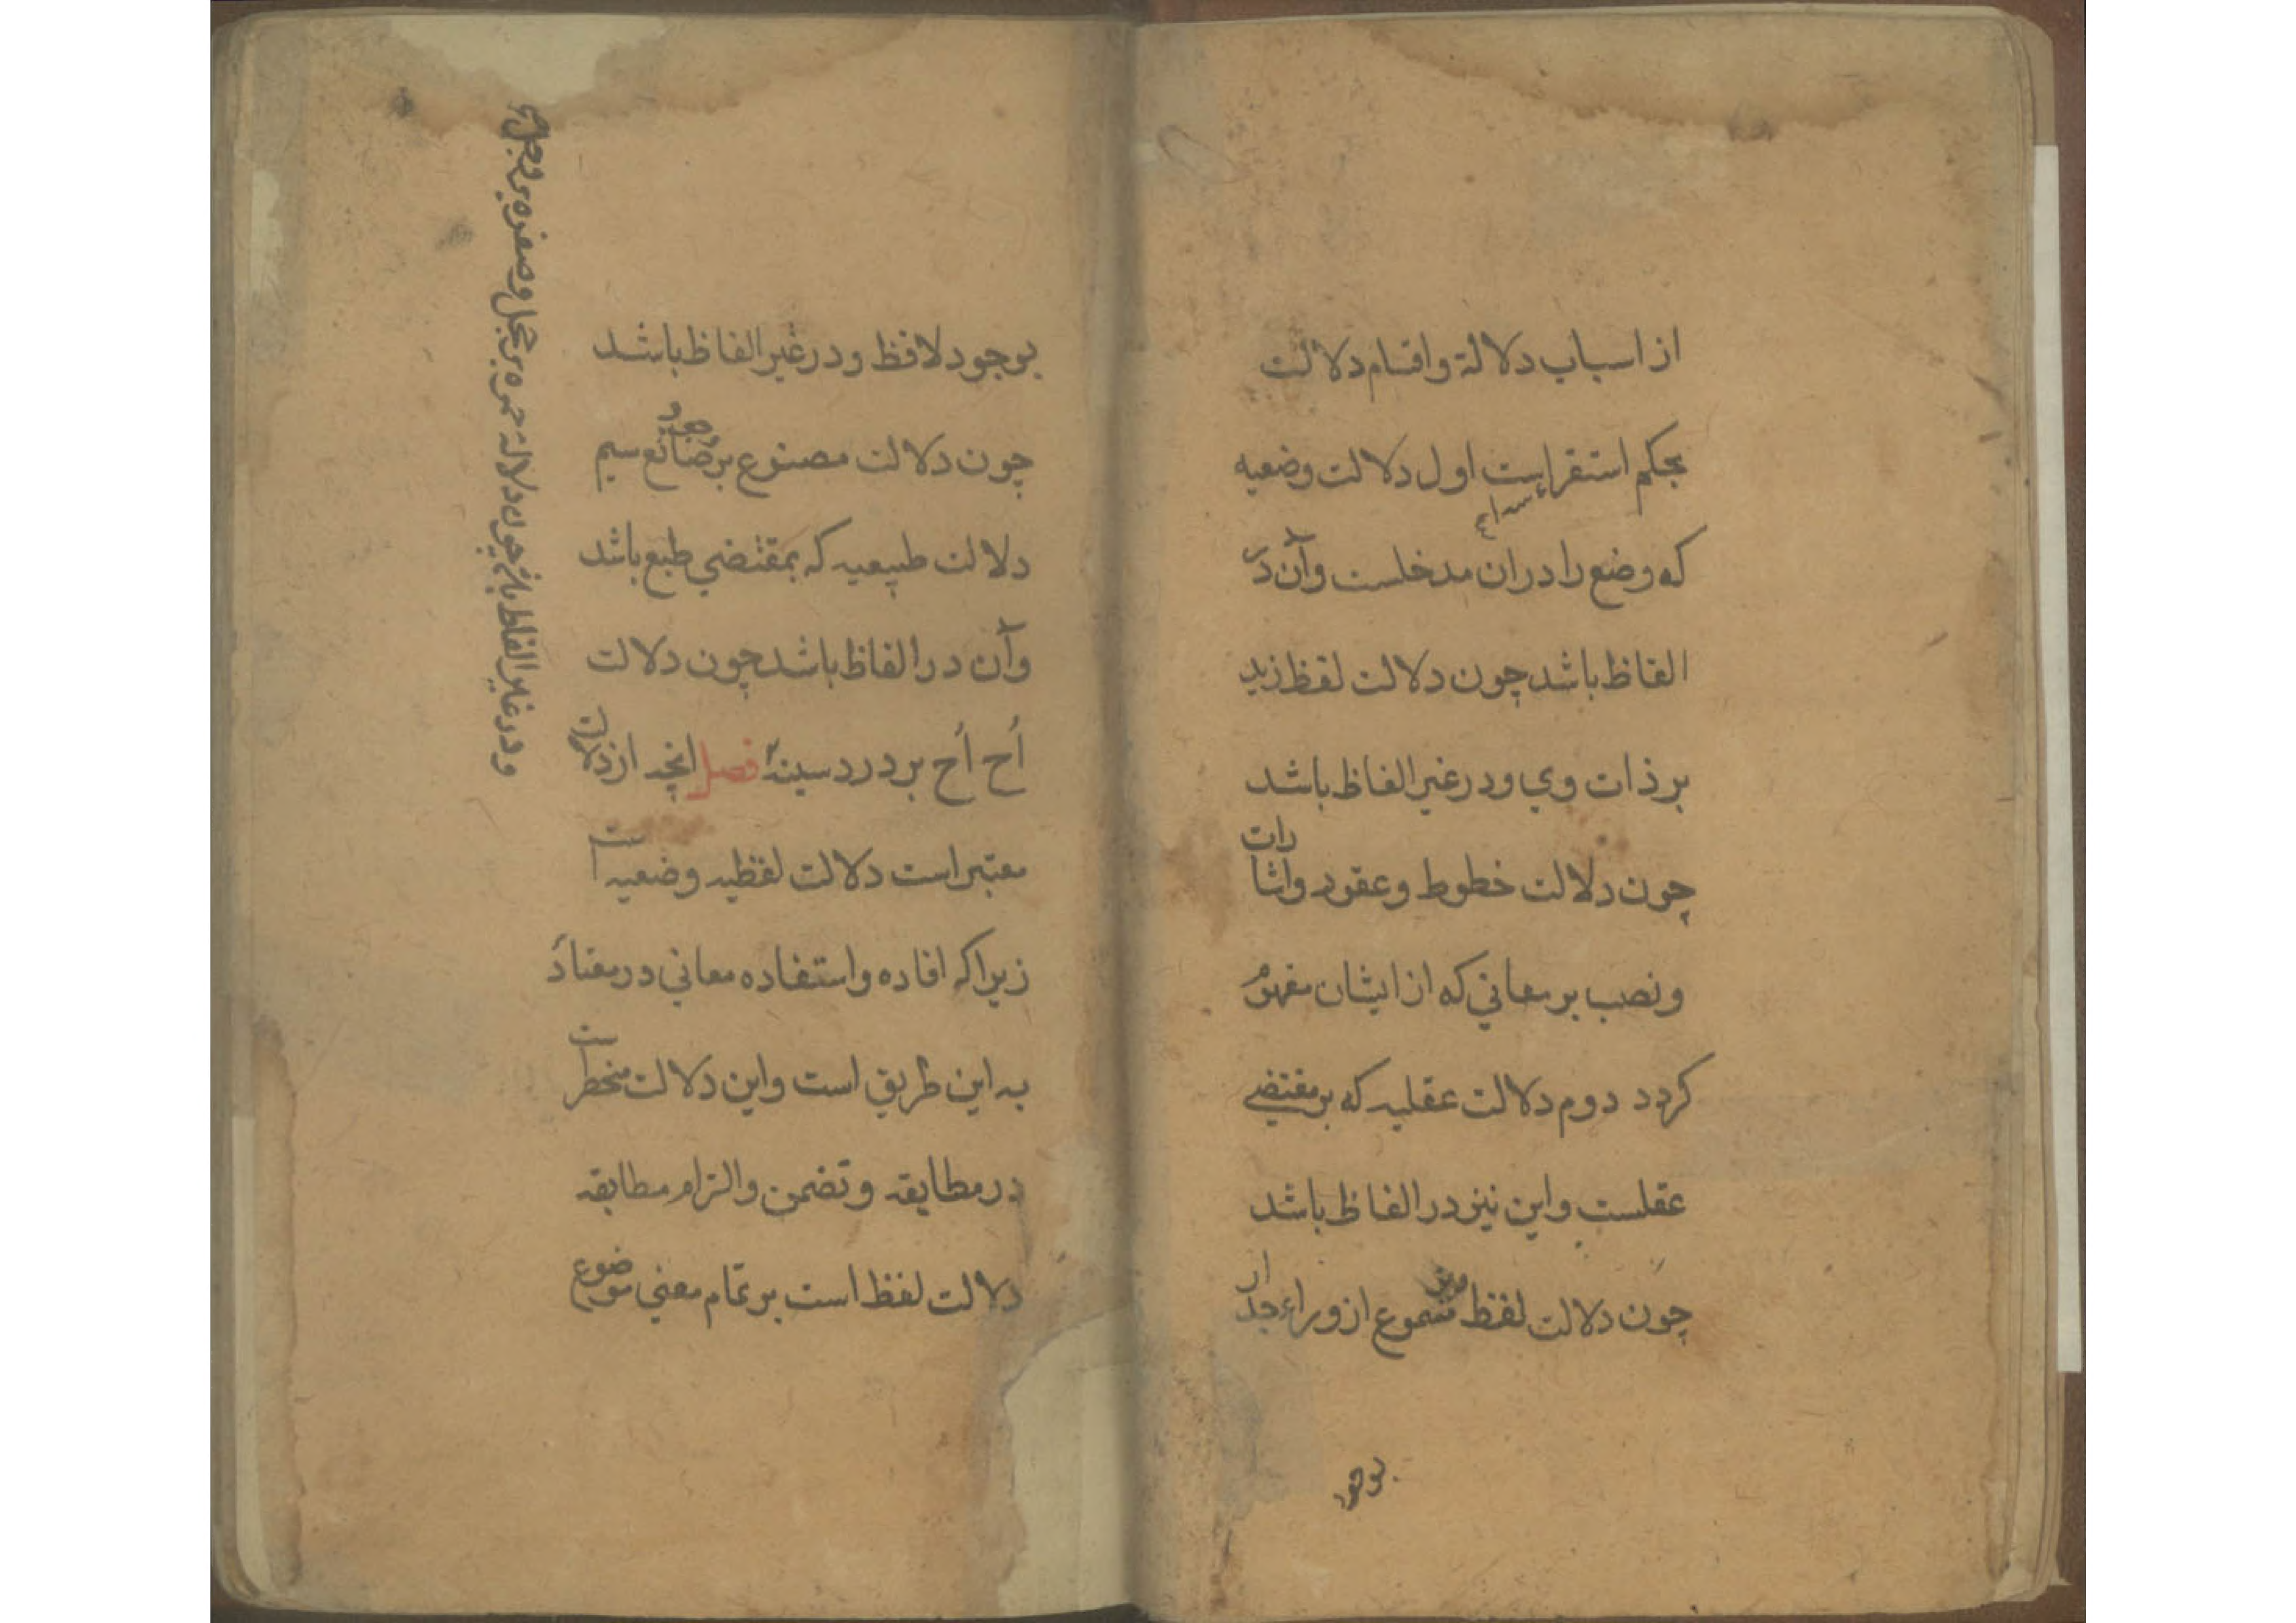 از اسباب دلالة و اقسام دلالت
بحکم استقرا سه است اول دلالت وضعیه
که وضع را دران مدخلست وآن در
الفاظ باشد چون دلالت لفظ زید
بر ذات وي و در غیر الفاظ باشد
چون دلالت خطوط و عقود و اشارات
و نصب بر معاني که از ایشان مفهوم
کردد دوم دلالت عقلیه که بر مقتضي
عقلست و این نیز در الفاظ باشد
چون دلالت لفظ مسموع از وراء جدار
بوجود
بوجود لافظ و در غیر الفاظ باشد
چون دلالت مصنوع بر وجود صانع سیم
دلالت طبیعیه که بمقتضي طبع باشد
وآن در الفاظ باشد چون دلالت
اُح اُح بر درد سینه فصل انچه از دلالت
معتبر است دلالت لفظیه وضعیه است
زیرا که افاده و استفاده معاني در معتاد
به این طریق است و این دلالت منحصر است
در مطابقه و تضمن و التزام مطابقه
دلالت لفظ است بر تمام معني موضوع
و در غیر الفاظ باشد چون دلالة حمره بر خجل و صفره بر وجل